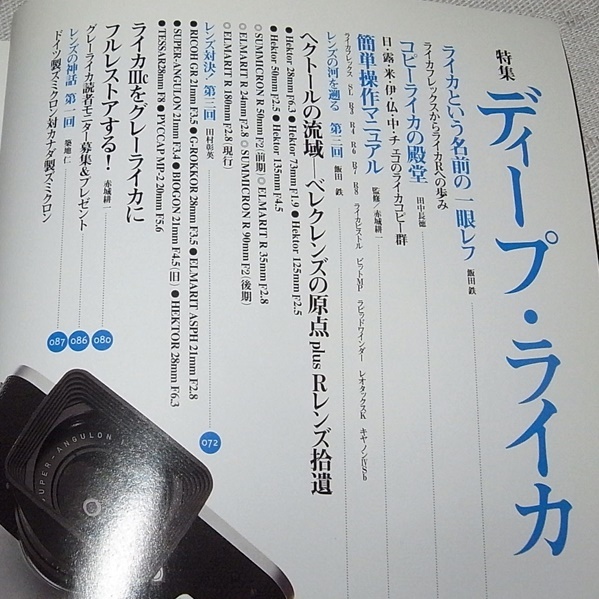 特集
ディープ・ライカ
ライカという名前の一眼レフ 飯田 鉄
ライカフレックスからライカRへの歩み
コピーライカの殿堂 田中長徳
日・露・米・伊・仏・中・チェコのライカコピー群
簡単操作マニュアル 監修/赤城耕一
ライカフレックス SL R3 R4 R6 R7 R8 ライカピストル ビットMP ラピッドワインダー レオタックスK キヤノンIVSb
レンズの河を遡る 第三回 飯田 鉄
ヘクトールの流域—ベレクレンズの原点 plus Rレンズ拾遺
● Hektor 28mm F6.3 ● Hektor 73mm F1.9 ● Hektor 125mm F2.5
● Hektor 50mm F2.5 ● Hektor 135mm F4.5
◎ SUMMICRON R 50mm F2(前期) ◎ ELMARIT R 35mm F2.8
◎ ELMARIT R 24mm F2.8 ◎ SUMMICRON R 90mm F2(後期)
◎ ELMARIT R 180mm F2.8(現行)
レンズ対決! 第三回 田村彰英 072
● RICOH GR 21mm F3.5 ● G-ROKKOR 28mm F3.5 ● ELMARIT ASPH 21mm F2.8
● SUPER-ANGULON 21mm F3.4 ● BIOGON 21mm F4.5(旧) ● HEKTOR 28mm F6.3
● TESSAR 28mm F8 ● PVCCAP MP-2 20mm F5.6
ライカⅢcをグレーライカに
フルレストアする! 赤城耕一 080
グレーライカ読者モニター募集&プレゼント 086
レンズの神話 第一回 築地 仁 087
ドイツ製ズミクロン対カナダ製ズミクロン
UPER-ANGULON